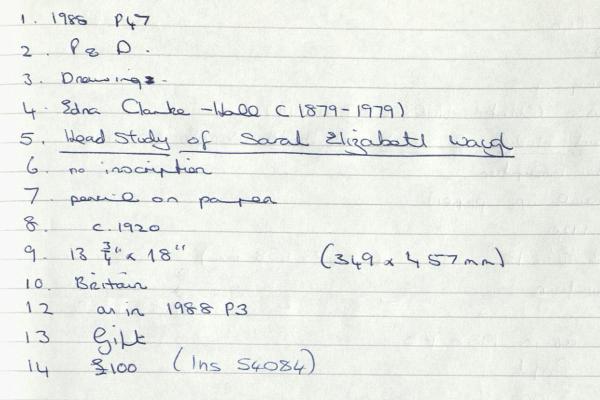 1. 1988 P47
2. P & D.
3. Drawings.
4. Edna Clarke-Hall (1879-1979)
5. Head Study of Sarah Elizabeth Waugh
6. no inscription
7. pencil on paper
8. c.1920
9. 13 3/4" x 18" (349 x 457mm)
10. Britain
12 as in 1988 P3
13 Gift
14 £100 (Ins S4084)